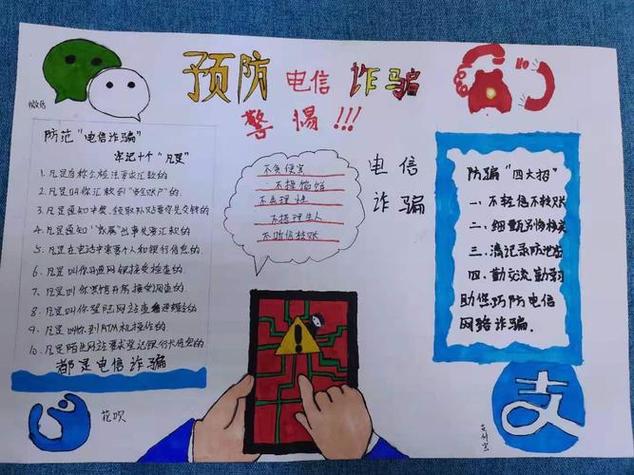 预防电信诈骗
警惕!!!
微信
防范"电信诈骗"
牢记十个"凡是"
1.凡是自称公检法要求汇款的
2.凡是叫你汇款到"安全账户"的.
3.凡是通知中奖、领取补贴要你先交钱的
4.凡是通知"家属"出事先要汇款的
5.凡是在电话中索要个人和银行信息的.
6.凡是叫你开通网银接受检查的.
7.凡是叫你宾馆开房接受调查的.
8.凡是叫你登陆网站查看通缉令的
9.凡是叫你到ATM机操作的.
10.凡是陌生网站要求登记银行卡信息的
都是电信诈骗
不贪便宜
不理生人
不听信转账
电信
诈骗
防骗"四大招"
一.不轻信不转账
二.细甄别勤核实
三.清记录防泄密
四.勤交流勤
助您巧防电信
网络诈骗.
支
支付宝